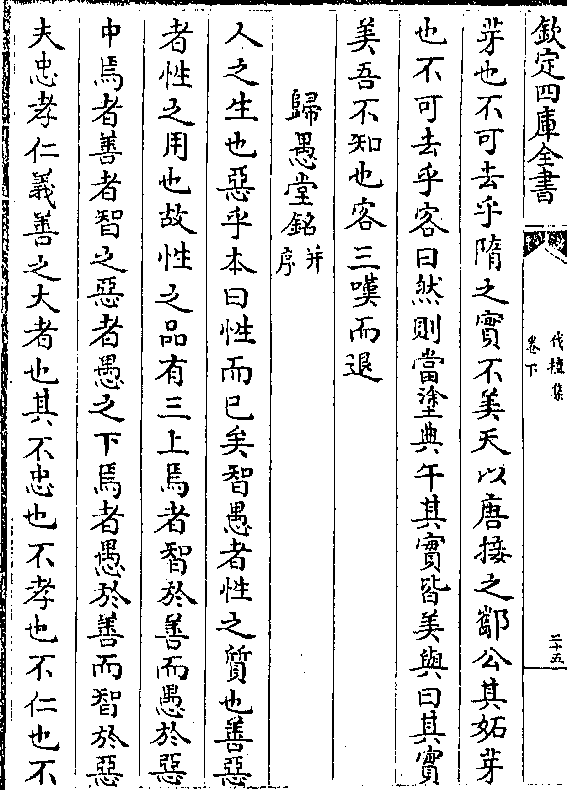 欽定四庫全書
伐檀集
卷下
二十五
芽也不可去乎隋之實不美天以唐接之酅公其妬芽
也不可去乎客曰然則當塗典午其實皆美與曰其實
美吾不知也客三嘆而退
歸愚堂銘并序
人之生也惡乎本曰性而已矣智愚者性之質也善惡
者性之用也故性之品有三上焉者智於善而愚於惡
中焉者善者智之惡者愚之下焉者愚於善而智於惡
夫忠孝仁義善之大者也其不忠也不孝也不仁也不